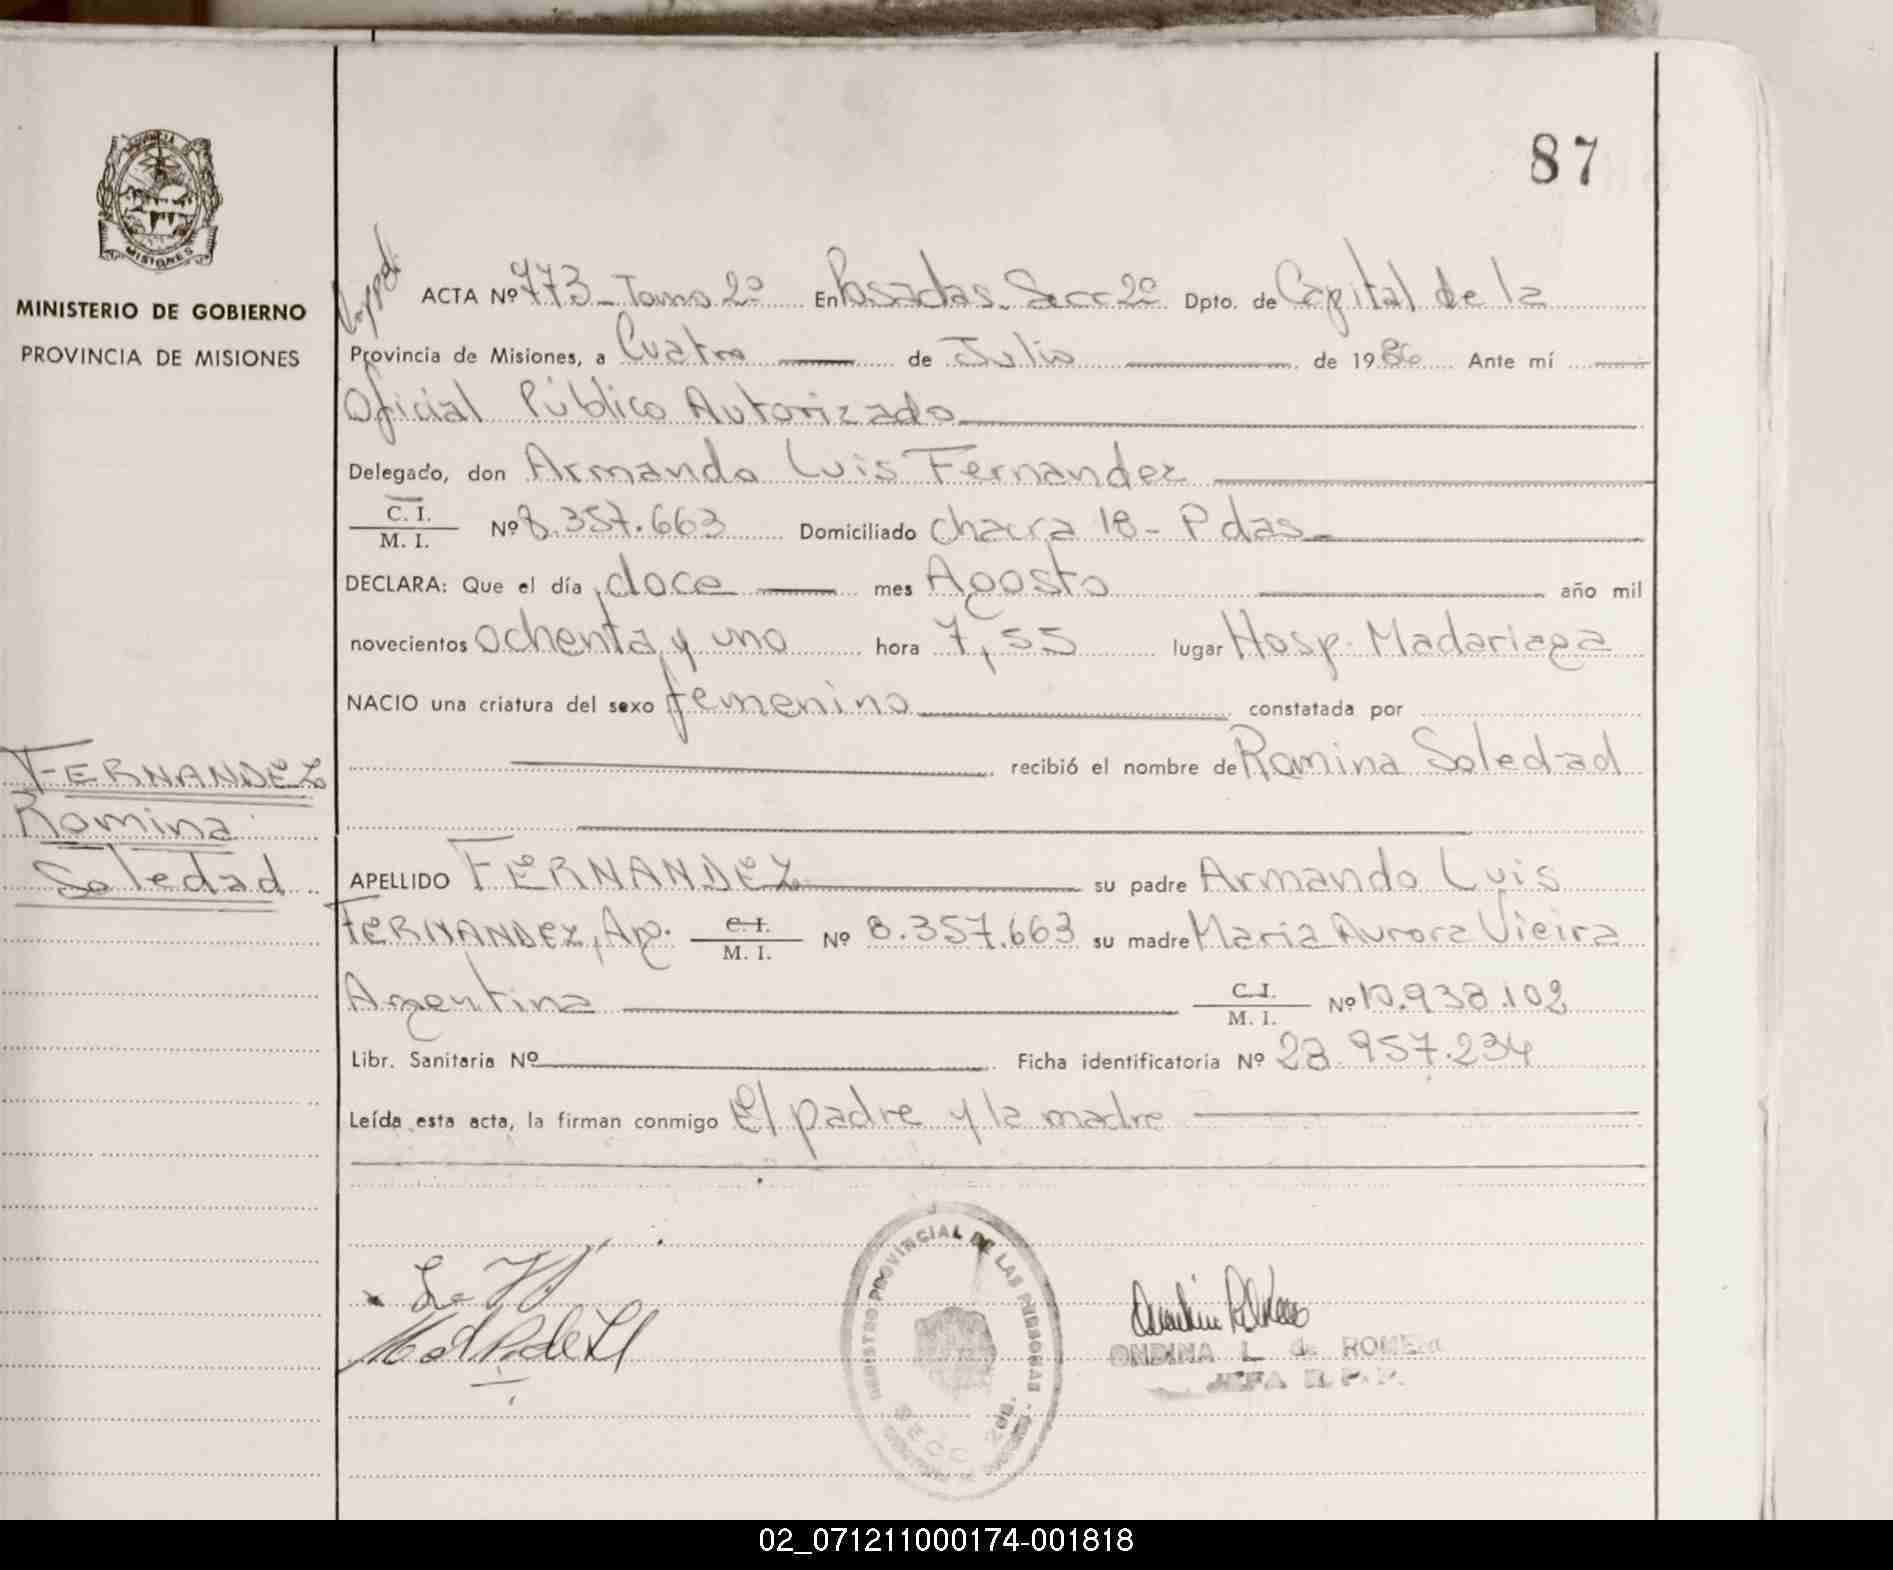 87
MISIONES
MINISTERIO DE GOBIERNO
PROVINCIA DE MISIONES
ACTA Nº 773 - Tomo 2º En Posadas. Secc 2º Dpto. de Capital de la
Provincia de Misiones, a Cuatro de Julio de 1986 Ante mí
Oficial Público Autorizado
Delegado, don Armando Luis Fernandez
C. I.
M. I. Nº 8.357.663 Domiciliado chacra 18 - Pdas.
DECLARA: Que el día doce mes Agosto año mil
novecientos ochenta y uno hora 7,55 lugar Hosp. Madariaga
NACIO una criatura del sexo femenino constatada por
recibió el nombre de Romina Soledad
FERNANDEZ
Romina
Soledad
APELLIDO FERNANDEZ su padre Armando Luis
FERNANDEZ, Arg. C. I.
M. I. Nº 8.357.663 su madre Maria Aurora Vieira
Argentina C. I.
M. I. Nº 10.938.102
Libr. Sanitaria Nº Ficha identificatoria Nº 28.957.234
Leída esta acta, la firman conmigo El padre y la madre
REGISTRO PROVINCIAL DE LAS PERSONAS
SECC 2da.
ONDINA L. de ROMERO
JEFA R.P.P.
02_071211000174-001818